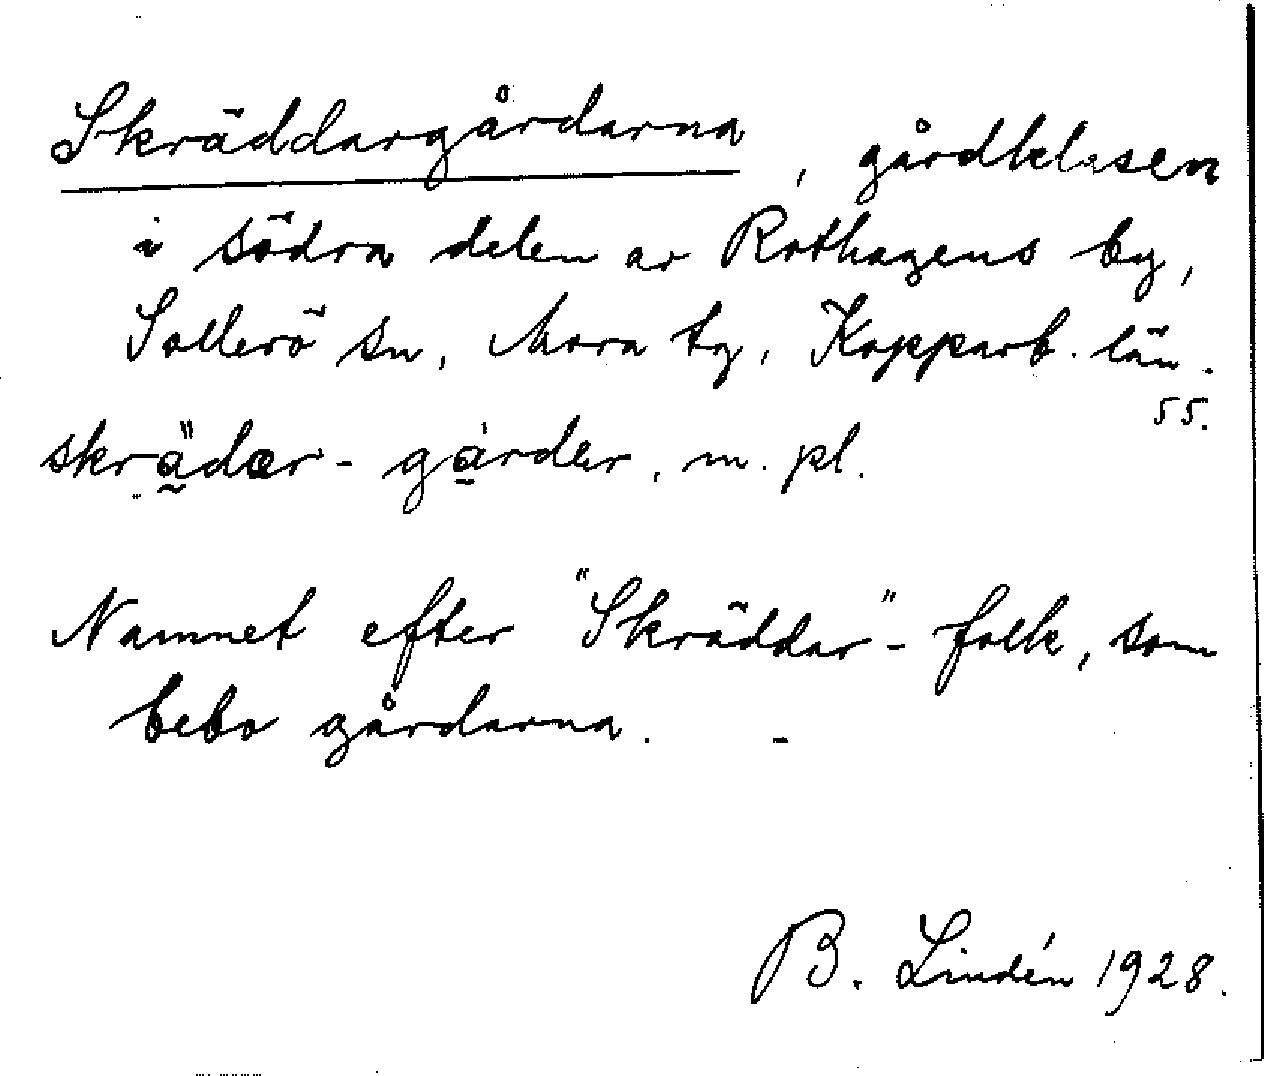 Skräddargårdarna, gårdklasen
i södra delen av Rothagens by,
Sollerö sn, Mora tg, Kopparb. län.
55.
skrädær-gårder, m. pl.
Namnet efter "Skräddar"-folk, som
bebo gårdarna. -
B. Lindén 1928.